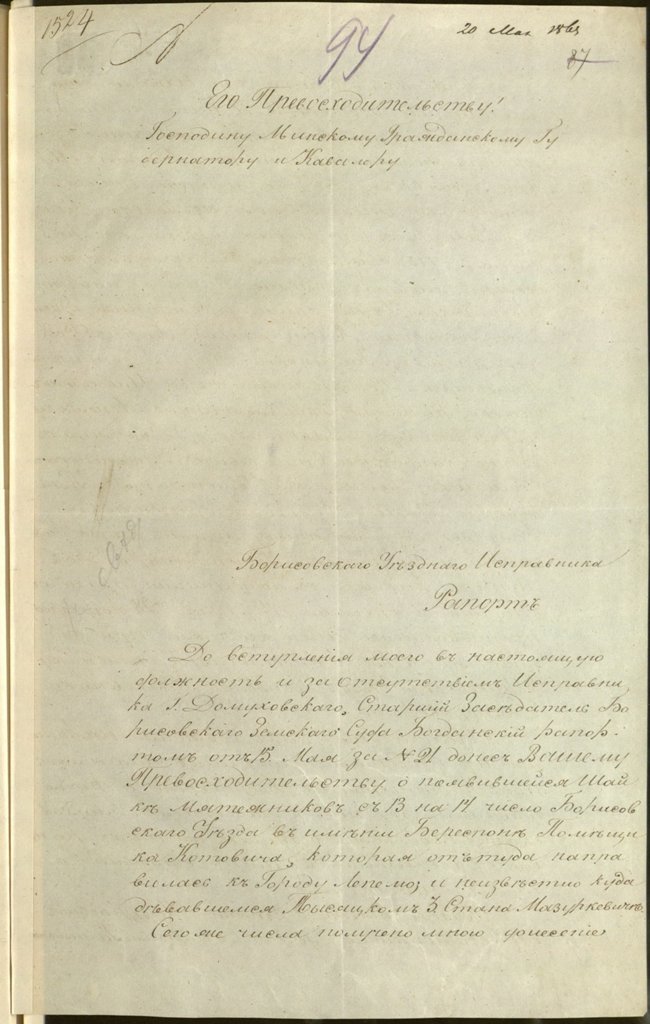 1524
94
20 Мая 1863
87
Его Превосходительству!
Господину Минскому Гражданскому Гу
бернатору и Кавалеру
Борисовскаго Уѣзднаго Исправника
Рапортъ
До вступленія моего въ настоящую
должность и за отсутствіемъ Исправни
ка Г. Домуховскаго, Старшій Засѣдатель Бо
рисовскаго Земскаго Суда Богданскій рапор-
томъ отъ 15 Мая за № 21 донесъ Вашему
Превосходительству о появившейся Шай
кѣ Мятежниковъ съ 13 на 14 число Борисов
скаго Уѣзда въ имѣніи Помѣщи
ка Котовича, которая оттуда напра
вилась къ Городу и неизвѣстно куда
дѣвавшемся 3 Стана Мазуркевичѣ
Сего же числа получено мною донесеніе